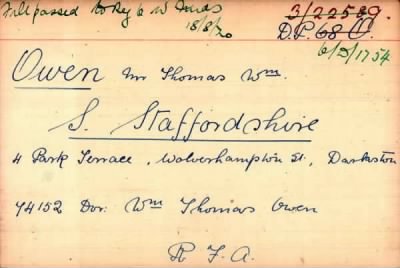 File passed to Reg 6 W Indas
18/8/20
3/22589.
D.P. 68 O
6/D/1754
Owen Mr Thomas Wm.
S. Staffordshire
4 Park Terrace, Wolverhampton St., Darlaston
74152 Dvr: Wm Thomas Owen
R F A.